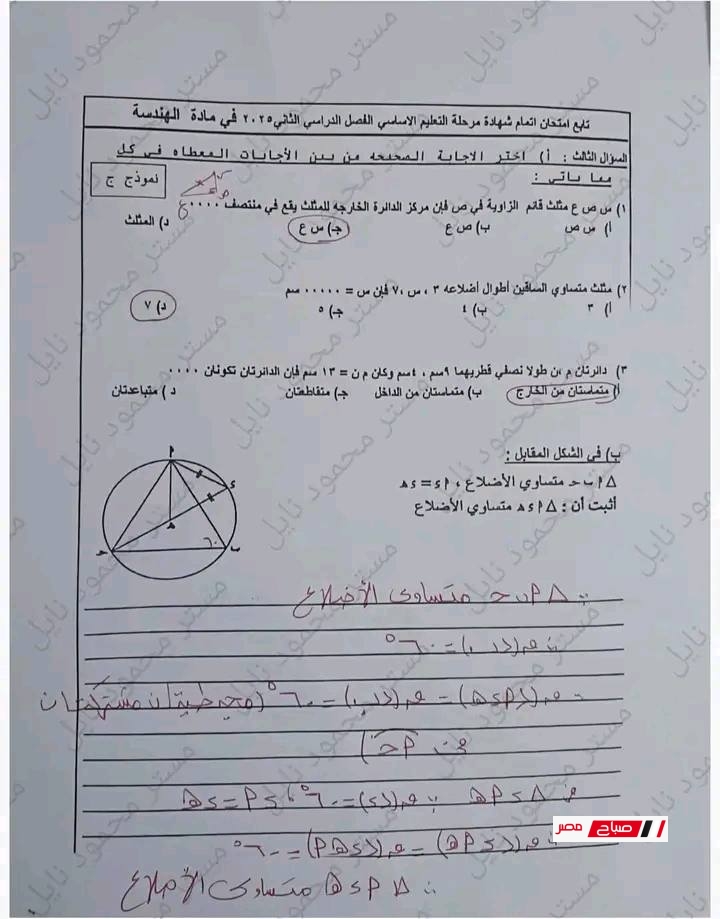 تابع امتحان اتمام شهادة مرحلة التعليم الاساسي الفصل الدراسي الثاني ٢٠٢٥ في مادة الهندسة
السؤال الثالث : أ) اختر الاجابة الصحيحه من بين الأجابات المعطاه في كل
مما ياتي :
نموذج ج
١) س ص ع مثلث قائم الزاوية في ص فإن مركز الدائرة الخارجه للمثلث يقع في منتصف ٠٠٠٠
أ) س ص ب) ص ع جـ) س ع د) المثلث
٢) مثلث متساوي الساقين أطوال أضلاعه ٣ ، س ،٧ فإن س = ٠٠٠٠٠ سم
أ) ٣ ب) ٤ جـ) ٥ د) ٧
٣) دائرتان م ،ن طولا نصفي قطريهما ٩سم ، ٤سم وكان م ن = ١٣ سم فإن الدائرتان تكونان ٠٠٠٠
أ) متماستان من الخارج ب) متماستان من الداخل جـ) متقاطعتان د ) متباعدتان
ب) في الشكل المقابل :
△ أ ب حـ متساوي الأضلاع ، أ د = د هـ
أثبت أن : △ أ د هـ متساوي الأضلاع
أ
د
هـ
حـ
ب
٦٠
∵ △ أ ب حـ متساوى الأضلاع
∴ ق(∠ب) = ٦٠°
∵ ق(∠أ د هـ) = ق(∠ب) = ٦٠° (محيطيتان مشتركتان
فى أ حـ)
فى △ د أ هـ ∵ ق(∠د) = ٦٠° ، د أ = د هـ
∴ ق(∠د أ هـ) = ق(∠د هـ أ) = ٦٠°
∴ △ أ د هـ متساوى الأضلاع
صباح مصر
مستر محمود نايل